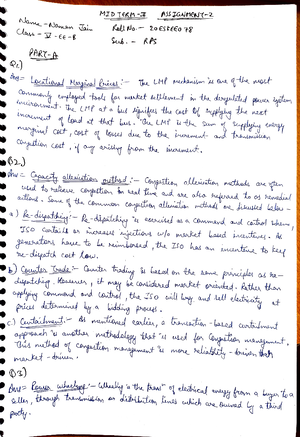 MID TERM-II ASSIGNMENT-2
Name - Naman Jain Roll No. - 20ESKEE078
Class - V-EE-B Sub. - RPS
PART-A
Ans= Locational Marginal Prices :- The LMP mechanism is one of the most
commonly employed tools for market settlement in the deregulated power system
environment. The LMP at a bus signifies the cost of supplying the next
increment of load at that bus. This LMP is the sum of supplying energy
marginal cost, cost of losses due to the increment and transmission
congestion cost, if any arising from the increment.
Q2.)
Ans= Capacity alleviation method :- Congestion alleviation methods are often
used to relieve congestion in real time and are also referred to as remedial
actions. Some of the common congestion alleviation methods are discussed below -
a) Re-dispatching :- Re-dispatching is exercised as a command and control scheme,
ISO curtails or increases injections w/o market based incentives. As
generators have to be reimbursed, the ISO has an incentive to keep
re-dispatch cost low.
b) Counter Trade :- Counter trading is based on the same principles as re-
dispatching. However, it may be considered market oriented. Rather than
applying command and control, the ISO will buy and sell electricity at
prices determined by a bidding process.
c) Curtailment :- As mentioned earlier, a transaction-based curtailment
approach is another methodology that is used for congestion management.
This method of congestion management is more reliability-driven than
market-driven.
Q.3)
Ans= Power wheeling :- Wheeling is the "trans" of electrical energy from a buyer to a
seller, through transmission or distribution lines which are owned by a third
party.